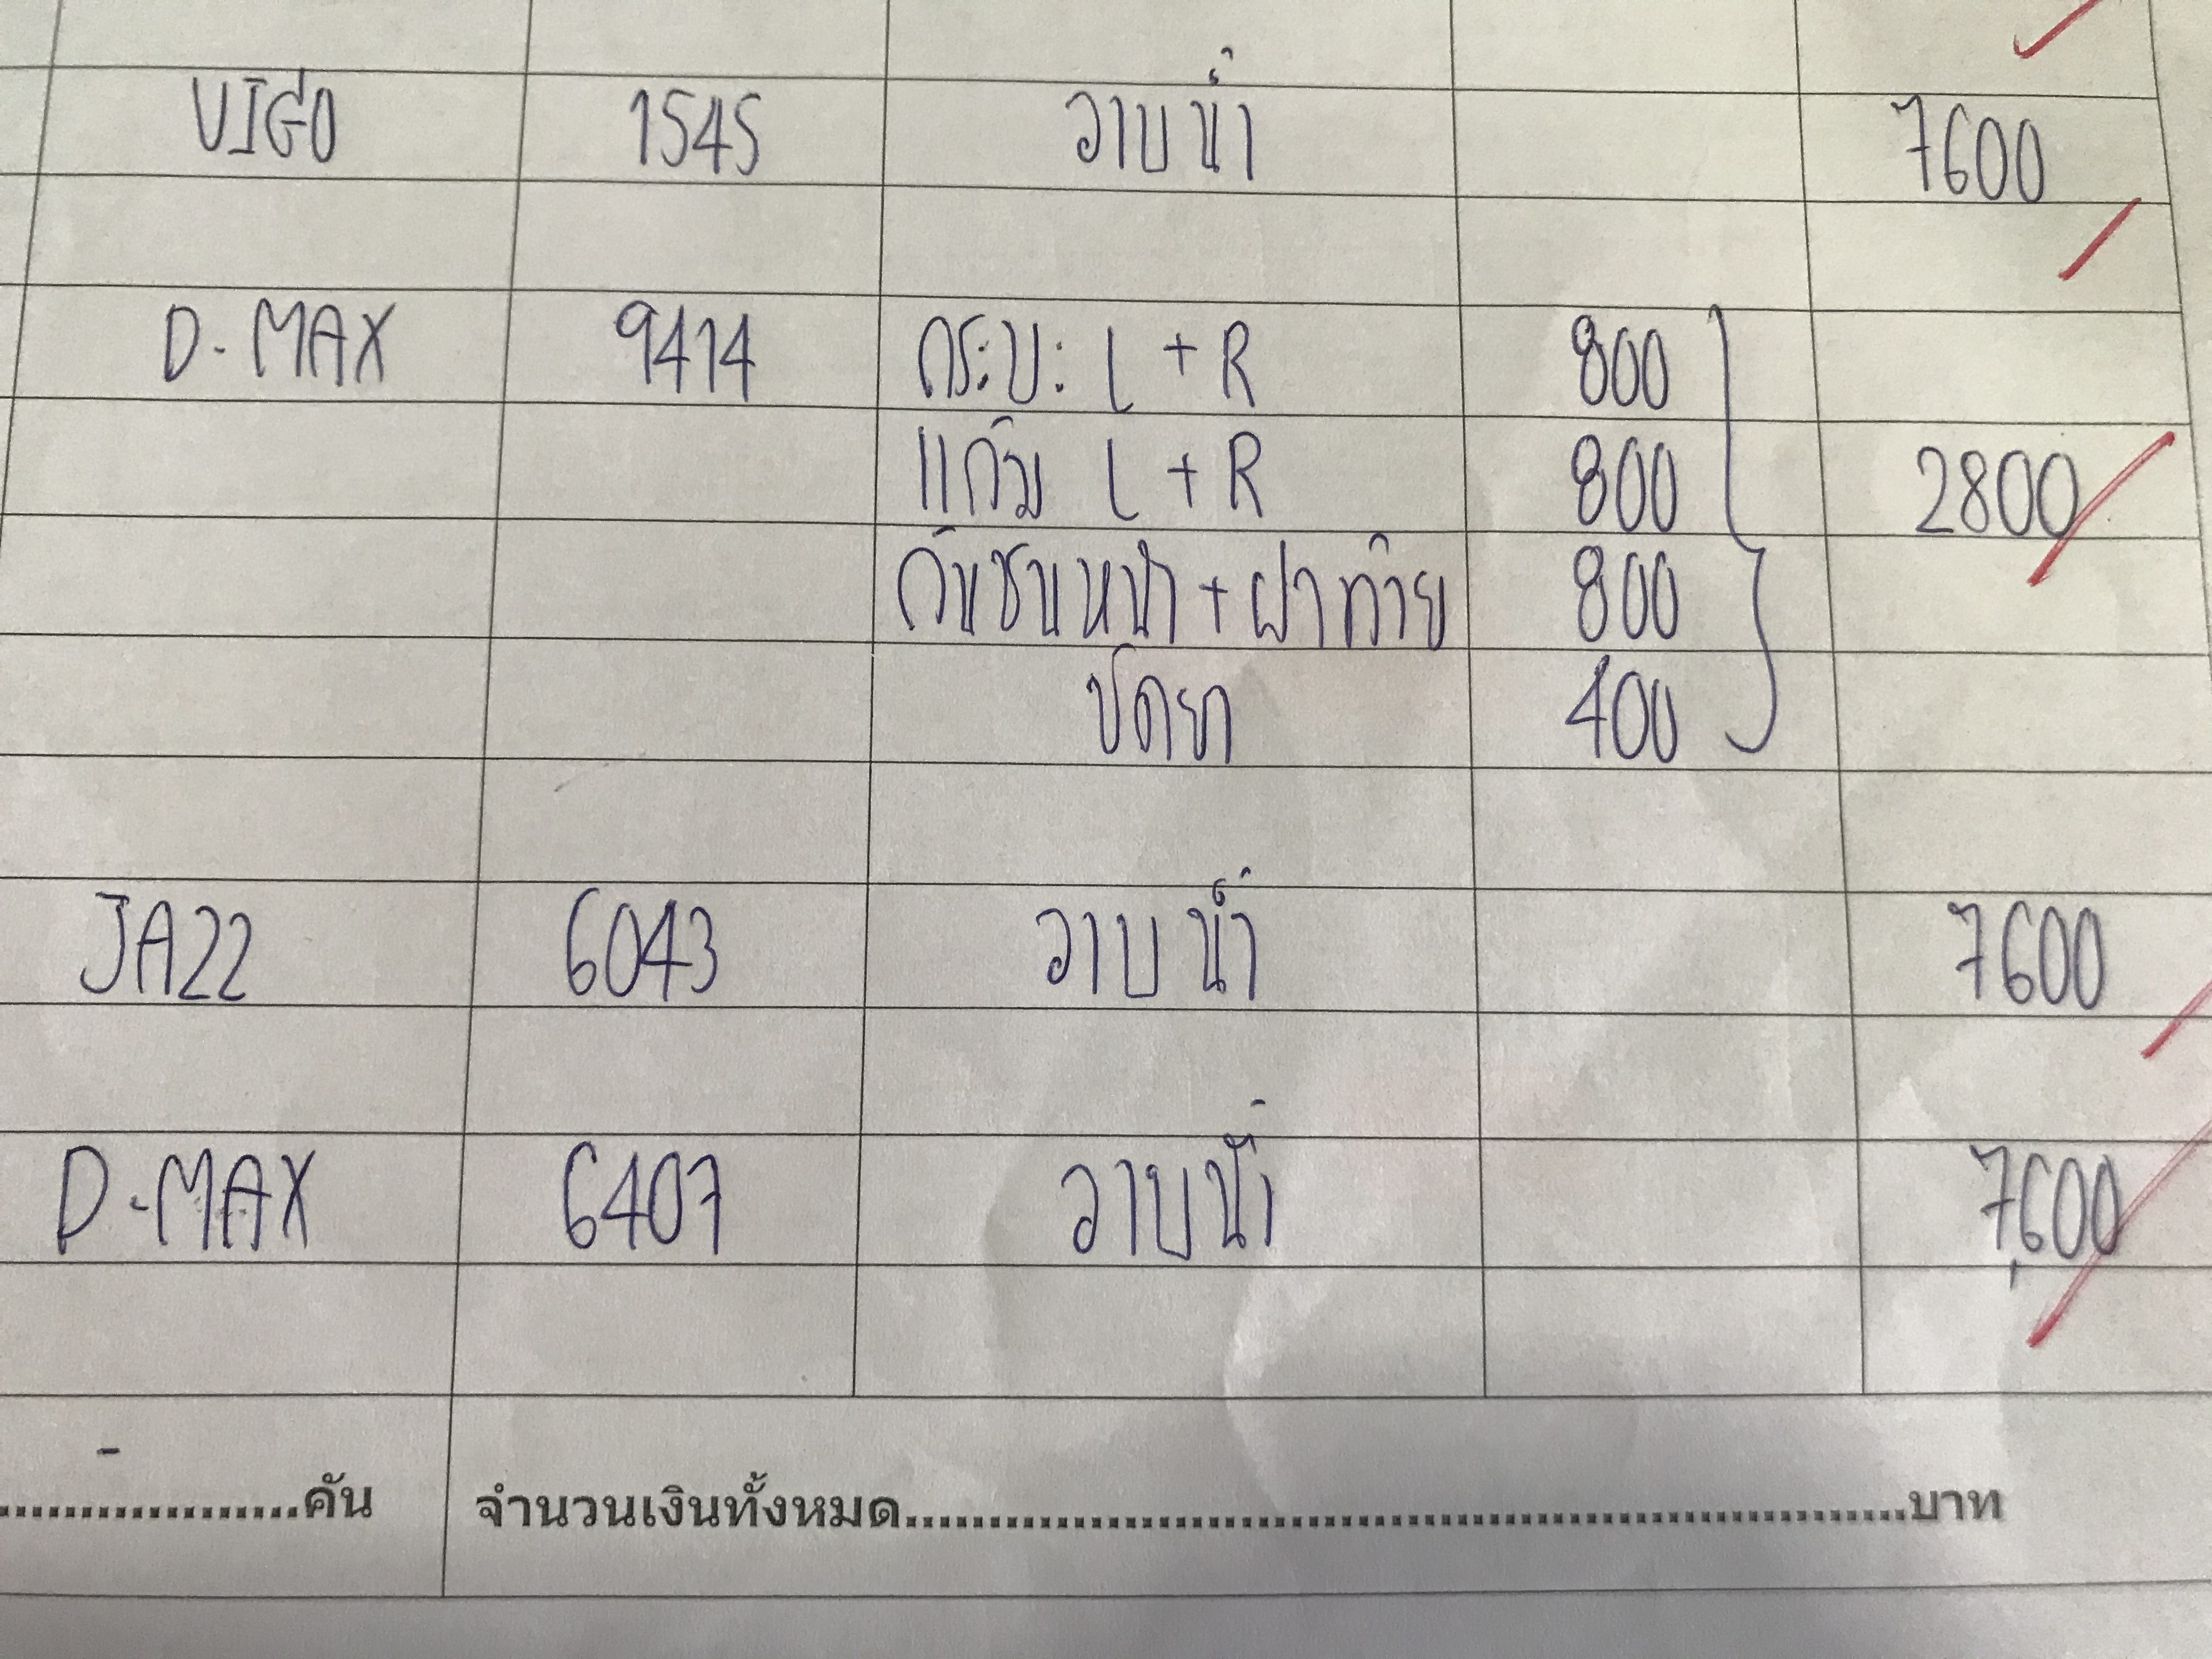 VIGO 1545 วาบน้ำ 7600
D-MAX 9414 กระบะ L + R 800
แก้ม L + R 800 2800
กันชนหน้า + ฝาท้าย 800
ปัดยา 400
JA22 6043 วาบน้ำ 7600
D-MAX 6407 วาบน้ำ 7,600
-
....................คัน จำนวนเงินทั้งหมด............................................................บาท